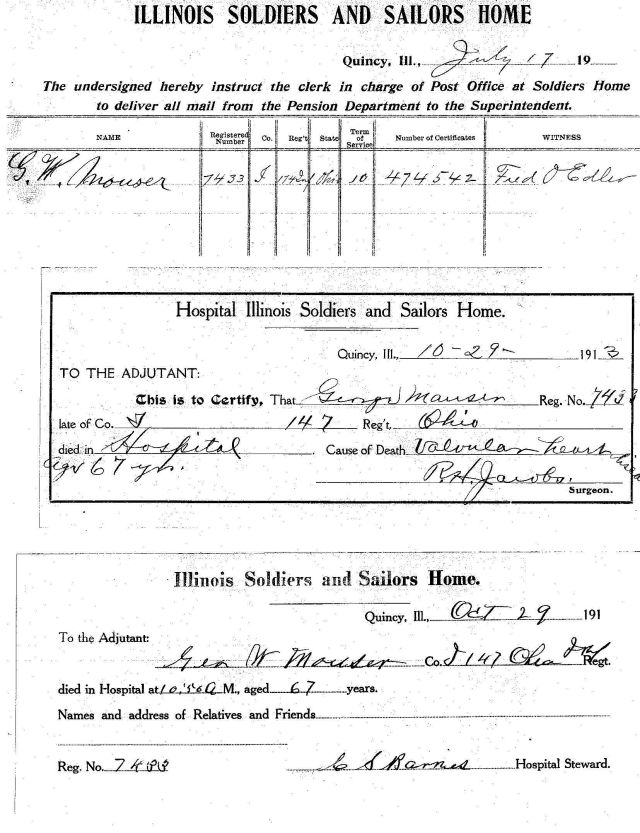 ILLINOIS SOLDIERS AND SAILORS HOME
Quincy, Ill., July 17 19
The undersigned hereby instruct the clerk in charge of Post Office at Soldiers Home
to deliver all mail from the Pension Department to the Superintendent.
NAME Registered Number Co. Reg't State Term of Service Number of Certificates WITNESS
G. W. Mouser 7433 I Ohio 10 474542 Fred O Edler
Hospital Illinois Soldiers and Sailors Home.
Quincy, Ill., 10-29- 1913
TO THE ADJUTANT:
This is to Certify, That George Mauser Reg. No. 7433
late of Co. I 147 Reg't. Ohio
died in Hospital Cause of Death Valvular heart disea
age 67 yrs. R.H. Jacobs.
Surgeon.
Illinois Soldiers and Sailors Home.
Quincy, Ill., Oct 29 191
To the Adjutant:
Geo W Mouser Co. I 147 Ohio Inf Regt.
died in Hospital at 10,50 A M., aged 67 years.
Names and address of Relatives and Friends
Reg. No. 7433 C S Barnes Hospital Steward.